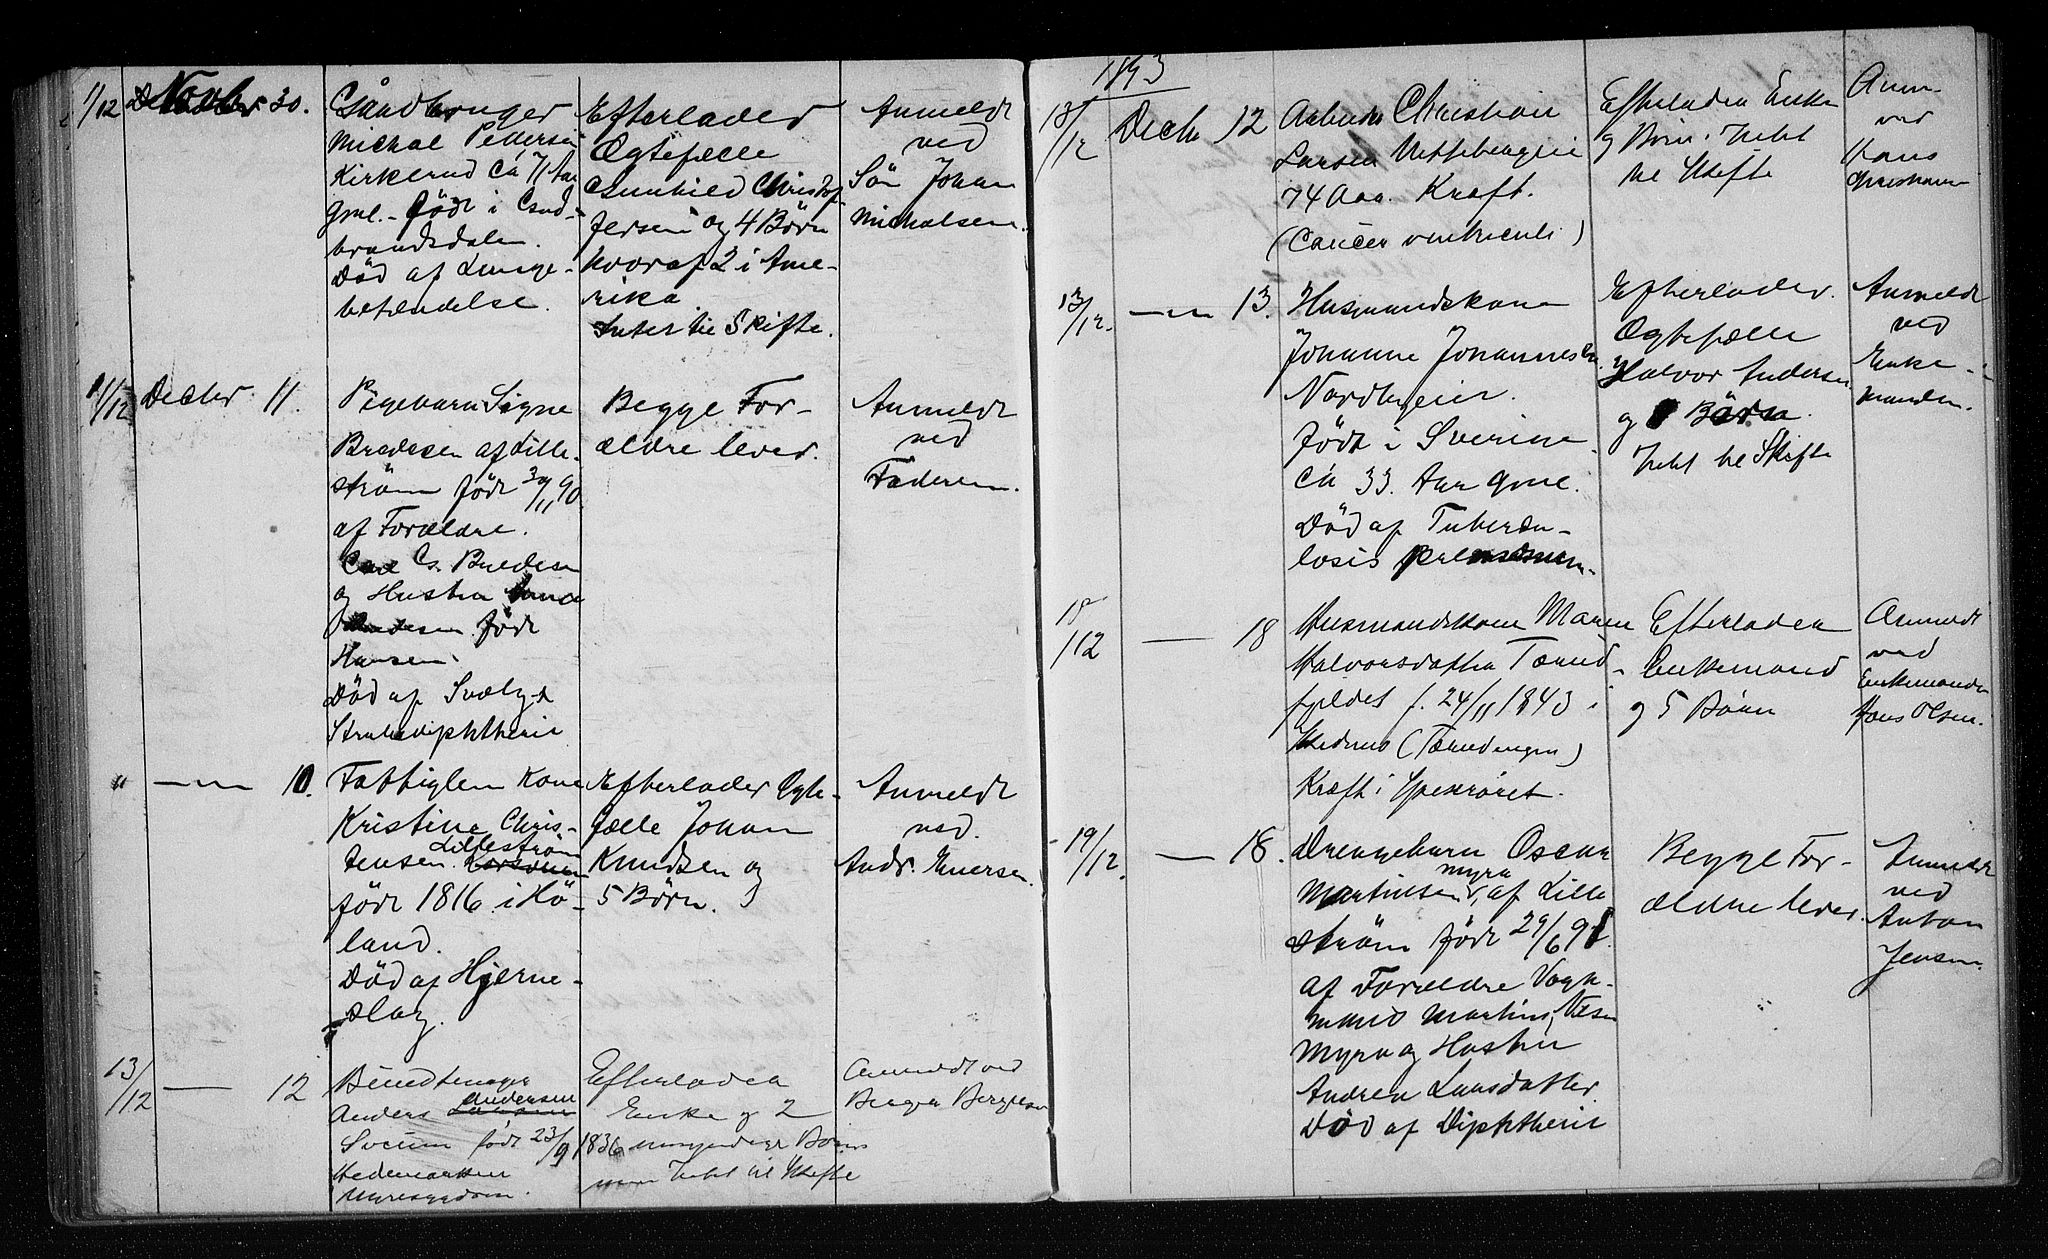 1/12 Novbr 30.
Gårdbruger
Michal Pedersen
Kirkerud Ca 71 Aar
gml. - født i Gud-
brandsdalen.
Død af Lunge-
betændelse.
Efterlader
Ægtefælle
Gunhild Christof-
fersen og 4 Børn
hvoraf 2 i Ame-
rika.
Intet til Skifte.
Anmeldt
ved
Søn Johan
Michalsen.
11/12 Decbr 11.
Pigebarn Signe
Bredesen af Lille-
strøm født 30/11 90
af Forældre.
Carl G. Bredesen
og Hustru
født
Hansen.
Død af Svælg &
Strubediphtherie
Begge For-
ældre lever.
Anmeldt
ved
Faderen.
" — " — 10.
Fattiglem Kone
Kristine Chris-
Lillestrøm
tensen.
født 1816 i Hø-
land.
Død af Hjerne-
slag.
Efterlader Ægte-
fælle Johan
Knudsen og
5 Børn.
Anmeldt
ved
Andr. Enersen.
13/12 — 12
Andersen
Anders Larsen
født 23/9 1836
Hedemarken
Efterlader
Enke og 2
umyndige Børn
men Intet til Skifte
Anmeldt ved
1893
13/12 Decbr 12
Arbeider Christian
Larsen
74 Aar. Kræft.
(Cancer ventriculi)
Efterlader Enke
og Børn. Intet
til Skifte
Anm.
ved
Hans
Christiansen
13/12. — " — 13.
Husmandskone
Johanne Johannesen.
Nordbyeie.
Født i Sverige
Ca 33 Aar gml.
Død af Tuberku-
losis pulmonum.
Efterlader.
Ægtefælle
Halvor Andersen
og Børn.
Intet til Skifte
Anmeldt
ved
Enke-
manden.
18/12 — 18
Husmandskone Maren
Halvorsdatter Tærud-
f. 24/11 1843 i
(Tærudengen)
Kræft i Spiserøret.
Efterlader
Enkemand
og 5 Børn
Anmeldt
ved
Enkemanden
Hans Olsen.
19/12. — 18.
Drengebarn Oscar
myra
Martinsen, af Lille
strøm født 29/6 91.
af Forældre Vogn-
mand Martin Olsen
Myra og Hustru
Andrea Larsdatter.
Død af Diphtherie
Begge For-
ældre lever.
Anmeldt
ved
Anton
Jensen.